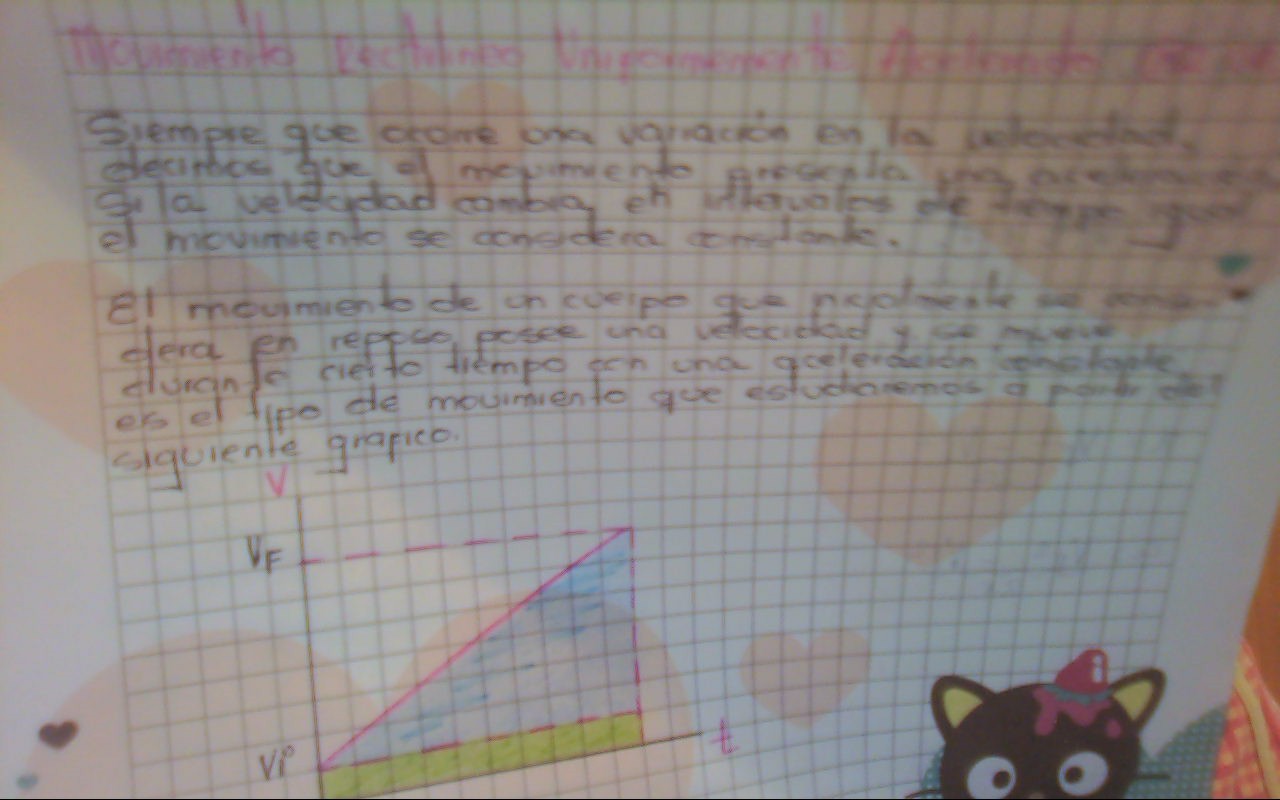 Movimiento Rectilíneo Uniformemente Acelerado
Siempre que ocurre una variación en la velocidad,
decimos que el movimiento presenta una aceleración
Si la velocidad cambia en intervalos de tiempo igual
el movimiento se considera constante.
El movimiento de un cuerpo que inicialmente se consi-
dera en reposo, posee una velocidad y se mueve
durante cierto tiempo con una aceleración constante,
es el tipo de movimiento que estudiaremos a partir del
siguiente grafico.
V
VF
Vi
t